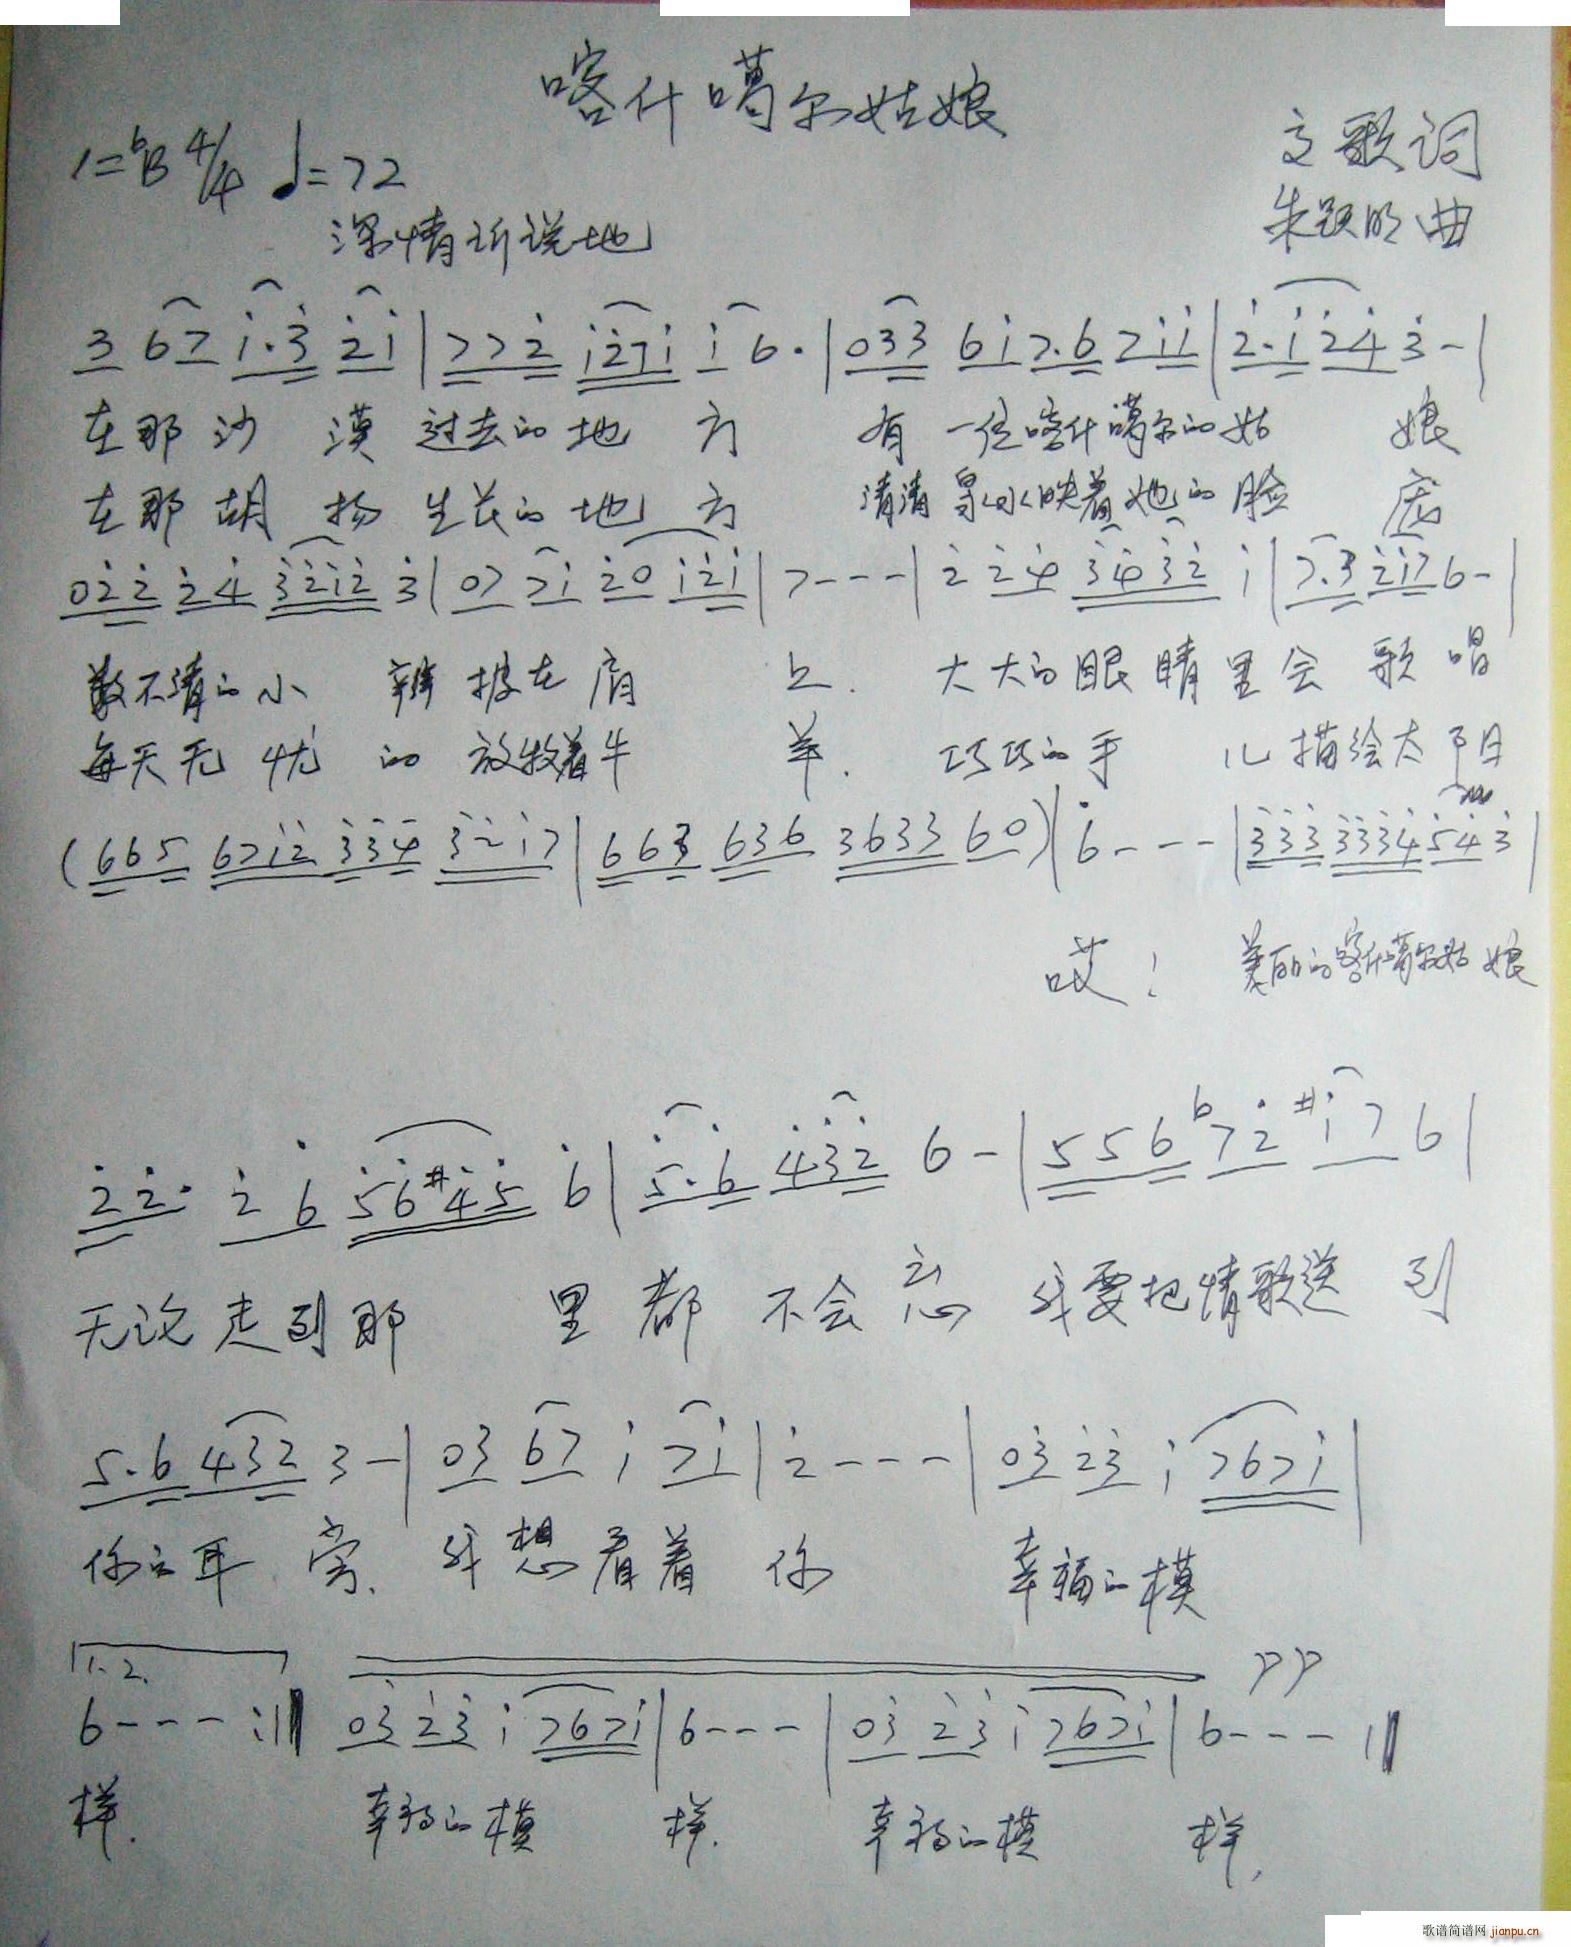 喀什噶尔姑娘
1=bB 4/4 ♩=72
文歌词
深情诉说地
朱跃明曲
3 67 i·3 2i | 772 i27i i 6· | 033 6i 7·6 7ii | 2·i 24 3 - |
在那沙漠过去的地方 有一位喀什噶尔的姑娘
在那胡杨生长的地方 清清泉水映着她的脸庞
022 24 3212 3 | 07 7i 20 i2i | 7--- | 2 24 3432 i | 7·3 2i7 6- |
数不清的小辫披在肩上. 大大的眼睛里会歌唱
每天无忧的放牧着牛羊. 巧巧的手儿描绘太阳
(665 67i2 334 32i7 | 663 636 3633 60) | 6--- | 333 3334 543 |
哎! 美丽的喀什噶尔姑娘
22· 2 6 56#45 6 | 5·6 432 6 - | 556 b72 #i7 6 |
无论走到那里都不会忘 我要把情歌送到
5·6 432 3 - | 03 67 i 7i | 2--- | 03 23 i 767i |
你的耳旁. 我想看着你 幸福的模
1.2.
6--- :|| 03 23 i 767i | 6--- | 03 23 i 767i | 6--- ||
样. 幸福的模样. 幸福的模样.
歌谱简谱网 jianpu.cn